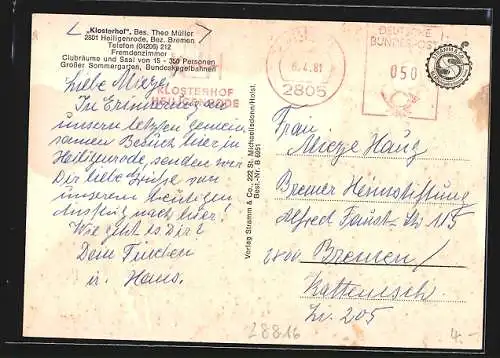 „Klosterhof", Bes. Theo Müller
2801 Heiligenrode, Bez. Bremen
Telefon (04206) 212
Fremdenzimmer
Clubräume und Saal von 15 - 350 Personen
Großer Sommergarten, Bundeskegelbahnen
KLOSTERHOF
HEILIGENRODE
6.4.81
2805
DEUTSCHE
BUNDESPOST
050
Liebe Miezge,
In Erinnerung an
unsern letzten gemein-
samen Besuch hier in
Heiligenrode, senden wir
Dir liebe Grüße von
unserem heutigen
Ausflug nach hier!
Wie geht es Dir?
Dein
u. Hans.
Verlag Stramm & Co., 222 St. Michaelisdonn-Holst.
Best.-Nr. B 6951
Frau
Miezge Haug
Bremer Heimstiftung
Alfred Faust-Str 115
2800 Bremen
Kattenesch.
Zi. 205
28816
4.-